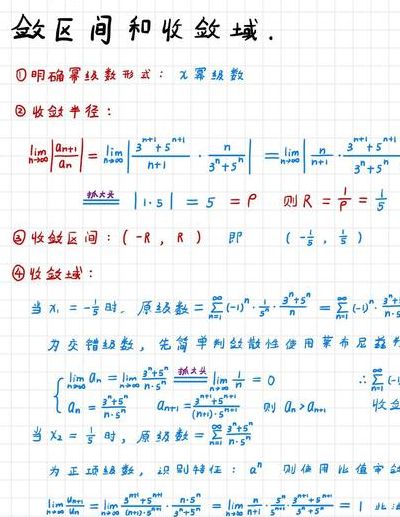 敛区间和收敛域.
① 明确幂级数形式: x幂级数
② 收敛半径:
lim n→∞ |a_{n+1}/a_n| = lim n→∞ |(3^{n+1}+5^{n+1})/(n+1) · n/(3^n+5^n)| = lim n→∞ |n/(n+1) · (3^{n+1}+5^{n+1})/(3^n+5^n)
抓大头 |1·5| = 5 = ρ 则 R = 1/ρ = 1/5
③ 收敛区间: (-R, R) 即 (-1/5, 1/5)
④ 收敛域:
当 x₁ = -1/5 时, 原级数 = ∑_{n=1}^∞ (-1)^n · 1/5^n · (3^n+5^n)/n = ∑_{n=1}^∞ (-1)^n · (3^n+5^n)/(n·5
为交错级数, 先简单判敛散性使用莱布尼兹
{ lim n→∞ a_n = lim n→∞ (3^n+5^n)/(n·5^n) 抓大头 lim n→∞ 1/n = 0 ∴ ∑_{n=1}^∞ (-1)
a_n = (3^n+5^n)/(n·5^n) a_{n+1} = (3^{n+1}+5^{n+1})/((n+1)·5^{n+1}) 则 a_n > a_{n+1} 收敛
当 x₂ = 1/5 时, 原级数 = ∑_{n=1}^∞ (3^n+5^n)/(n·5^n)
为正项级数, 识别特征: a^n 则使用比值审敛
lim n→∞ u_{n+1}/u_n = lim n→∞ (3^{n+1}+5^{n+1})/((n+1)·5^{n+1}) · (n·5^n)/(3^n+5^n) = lim n→∞ n/(n+1) · 5^n/5^{n+1} · (3^{n+1}+5^{n+1})/(3^n+5^n) = 1 此